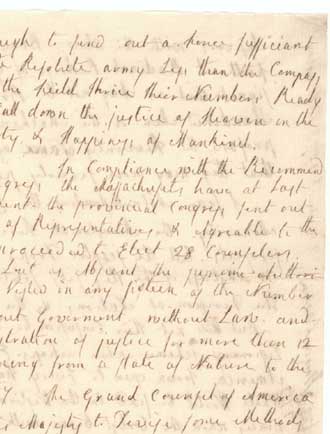 ough to find out a force sufficient
Resolute army Less than the Compass
the field thrice their Numbers Ready
all down the justice of Heaven on the
ty & Happiness of Mankind.
In Compliance with the Recommend
gress the Massachusetts have at Last
ment the provincial Congress sent out
of Representatives & Agreable to the
proceeded to Elect 28 Counselers
Lieut is Absent the supreme
Vested in any fifteen of the Number
out Goverment without Law and
stration of justice for more than 12
ing from a State of Nature to the
The Grand Counsel of America
s Majesty to Devise some Methods